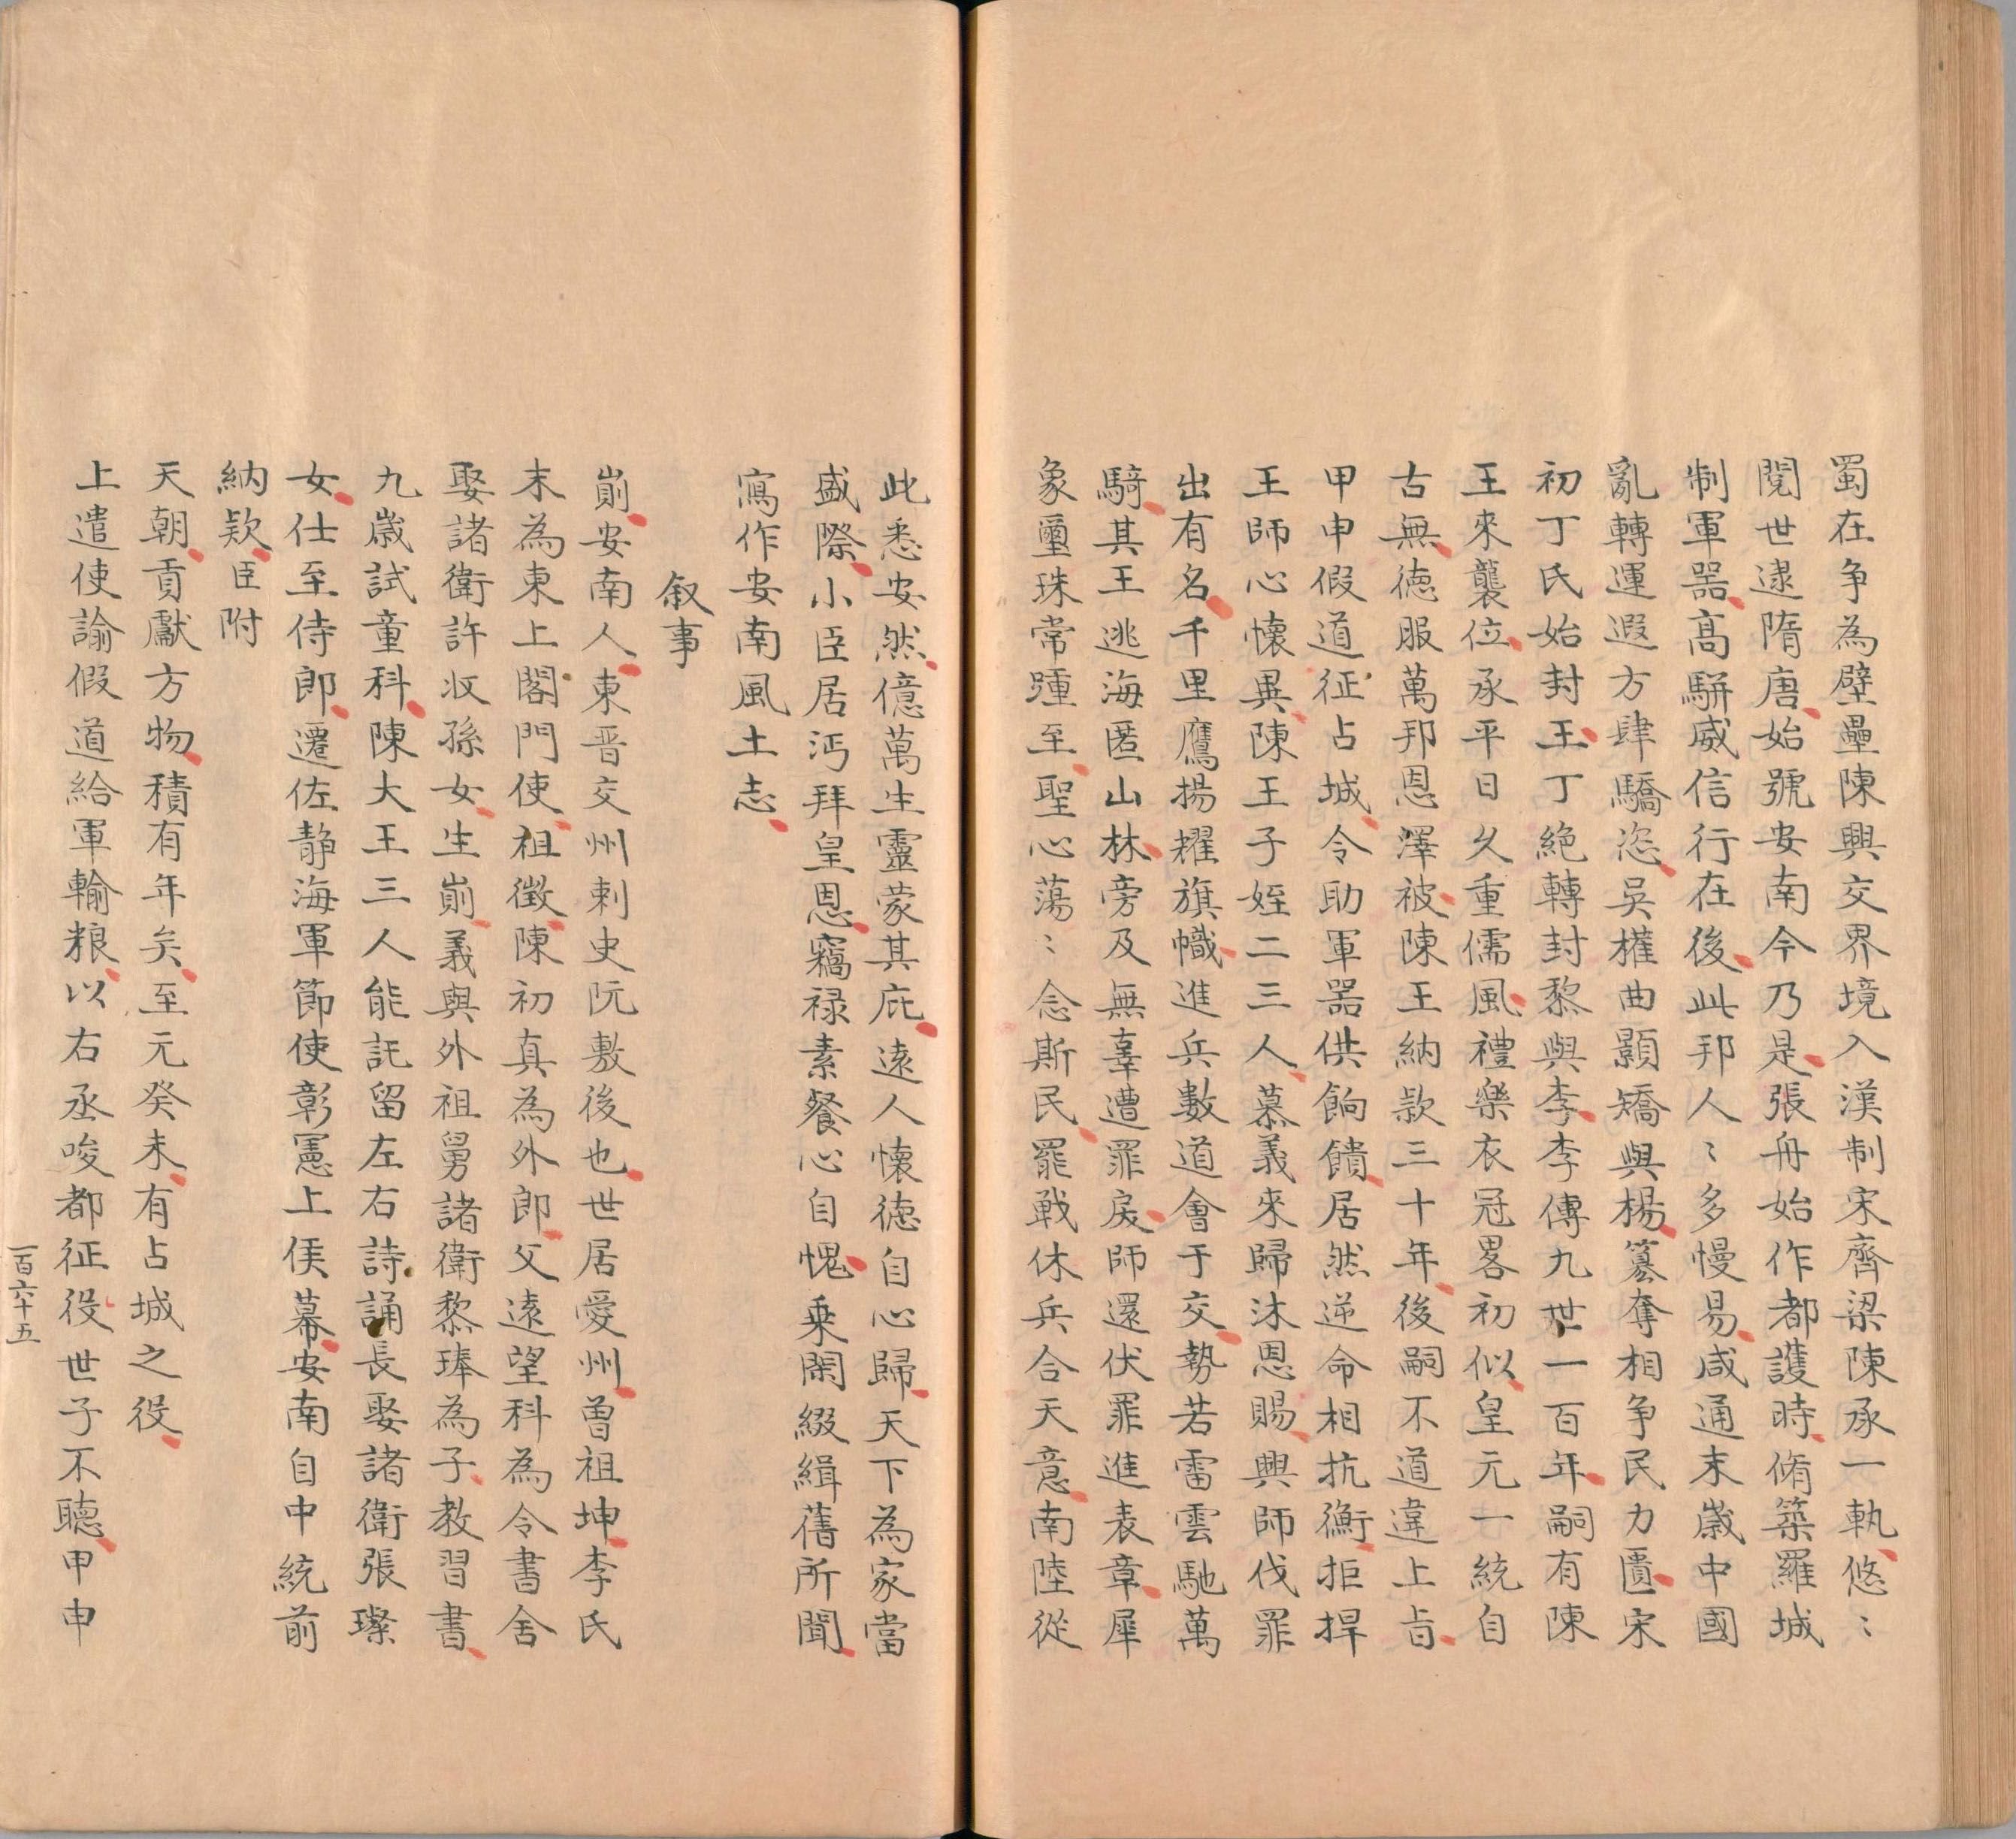 蜀在争為壁壘陳興交界境入漢制宋齊梁陳承一執悠〻
閱世逮隋唐始號安南今乃是張舟始作都護時脩築羅城
制軍器髙駢威信行在後此邦人〻多慢易咸通末歲中國
亂轉運遐方肆驕恣吳權曲顥矯與楊簒奪相争民力匱宋
初丁氏始封王丁絶轉封黎與李李傳九世一百年嗣有陳
王來襲位承平日久重儒風禮樂衣冠畧初似皇元一統自
古無德服萬邦恩澤被陳王納款三十年後嗣不道違上㫖
甲申假道征占城令助軍器供餉饋居然逆命相抗衡拒捍
王師心懷異陳王子姪二三人慕義來歸沐恩賜興師伐罪
出有名千里鷹揚耀旗幟進兵數道會于交勢若雷雲馳萬
騎其王逃海匿山林旁及無辜遭罪戾師還伏罪進表章犀
象璽珠常踵至聖心蕩〻念斯民罷戰休兵合天意南陸從
此悉安然億萬生靈蒙其庇遠人懷德自心歸天下為家當
盛際小臣居沔拜皇恩竊禄素餐心自愧乗閑綴緝舊所聞
寫作安南風土志
叙事
崱安南人東晋交州刺史阮敷後也世居愛州曽祖坤李氏
末為東上閣門使祖徵陳初真為外郎父遠望科為令書舍
娶諸衛許収孫女生崱義與外祖舅諸衛黎琫為子教習書
九歲試童科陳大王三人能託留左右詩誦長娶諸衛張璨
女仕至侍郎遷佐静海軍節使彰憲上侯幕安南自中統前
納欵臣附
天朝貢獻方物積有年矣至元癸未有占城之役
上遣使諭假道給軍輸粮以右丞唆都征役世子不聽甲申
一百六十五